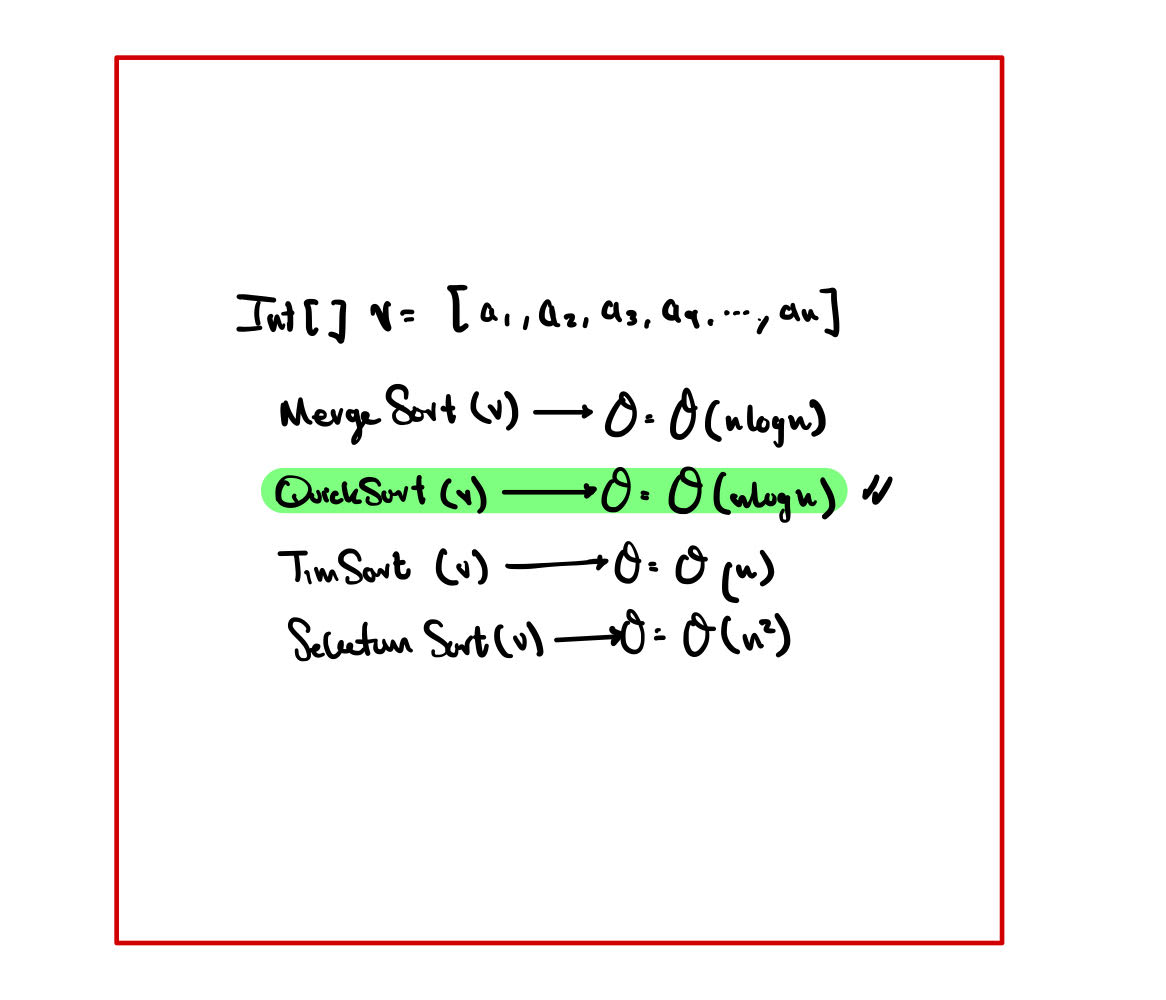 Int[] v = [a₁, a₂, a₃, a₄. ..., aₙ]
MergeSort (v) → O = O(nlogn)
QuickSort (v) → O = O(nlogn) //
TimSort (v) → O = O(n)
Selection Sort(v) → O = O(n²)